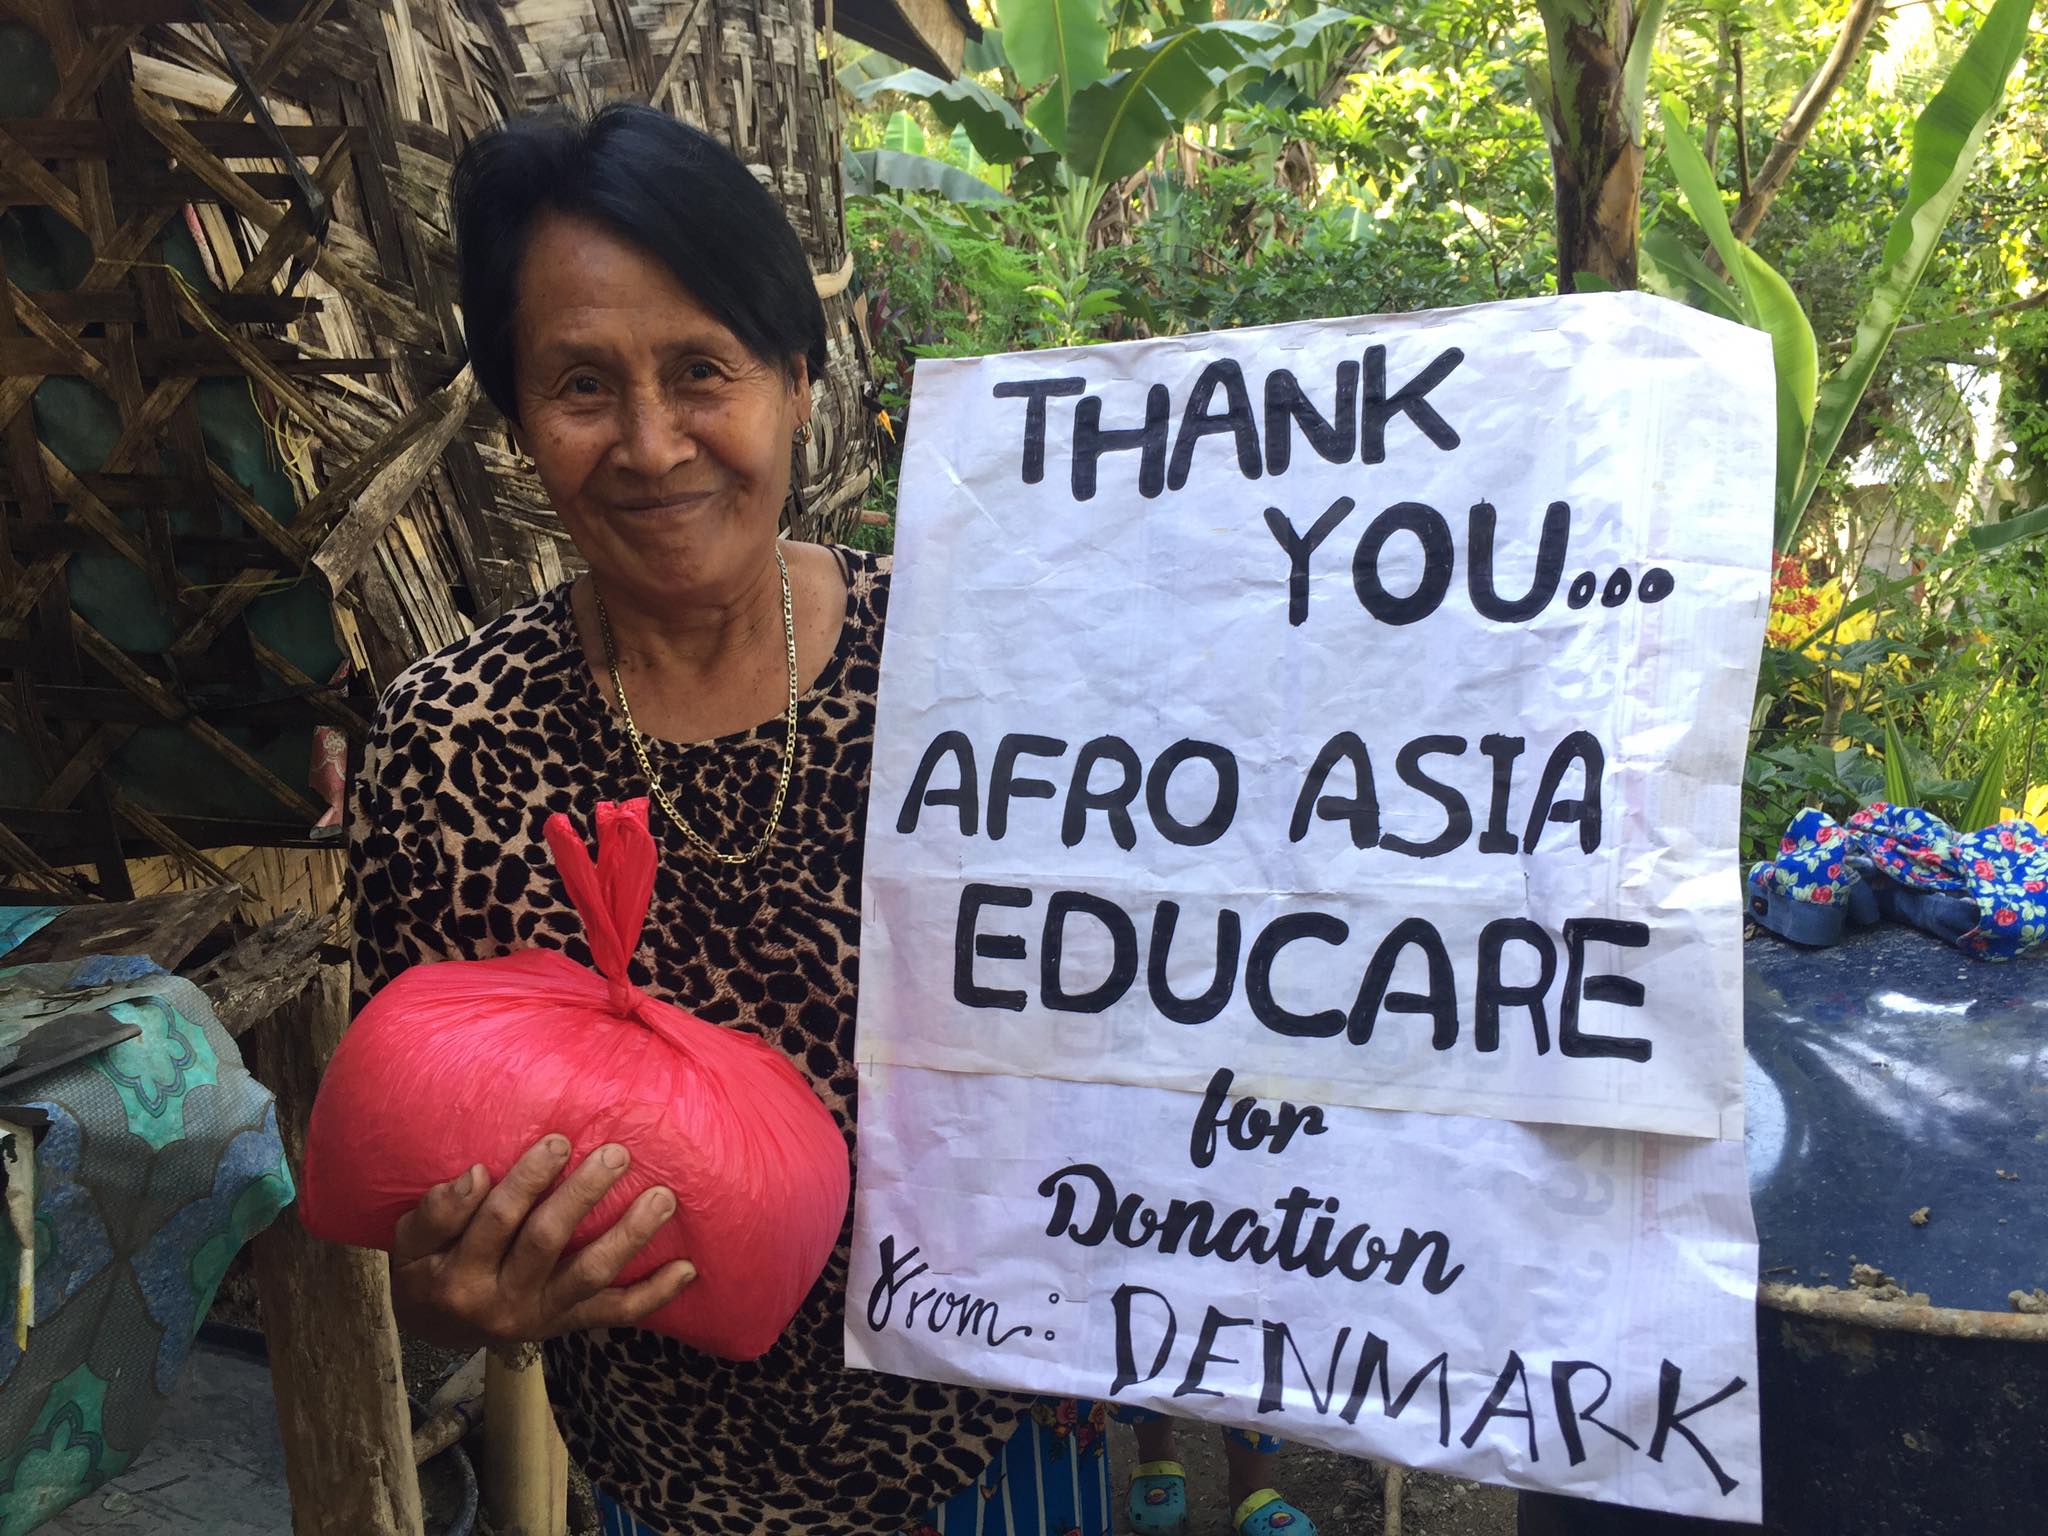 THANK
YOU...
AFRO ASIA
EDUCARE
for
Donation
From: DENMARK